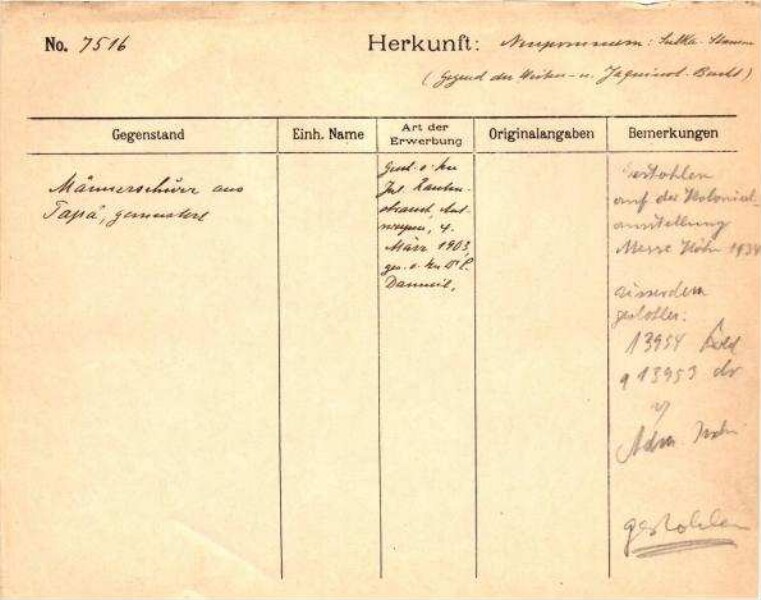 No. 7516
Herkunft: Neupommern: Sulka-Stamm
(Gegend der Weiten- u. Jaquinot-Bucht)
Gegenstand
Einh. Name
Art der
Erwerbung
Originalangaben
Bemerkungen
Männerschurz aus
Tapa, gemustert
Gesch. v. Hrn
Jul. Rauten-
strauch, Ant-
werpen, 4.
März 1903,
ges. v. Hrn Dr.
Danneil.
Gestohlen
auf der Kolonial-
ausstellung
Messe Köln 1934
ausserdem
gestohlen:
13954
13953
gestohlen